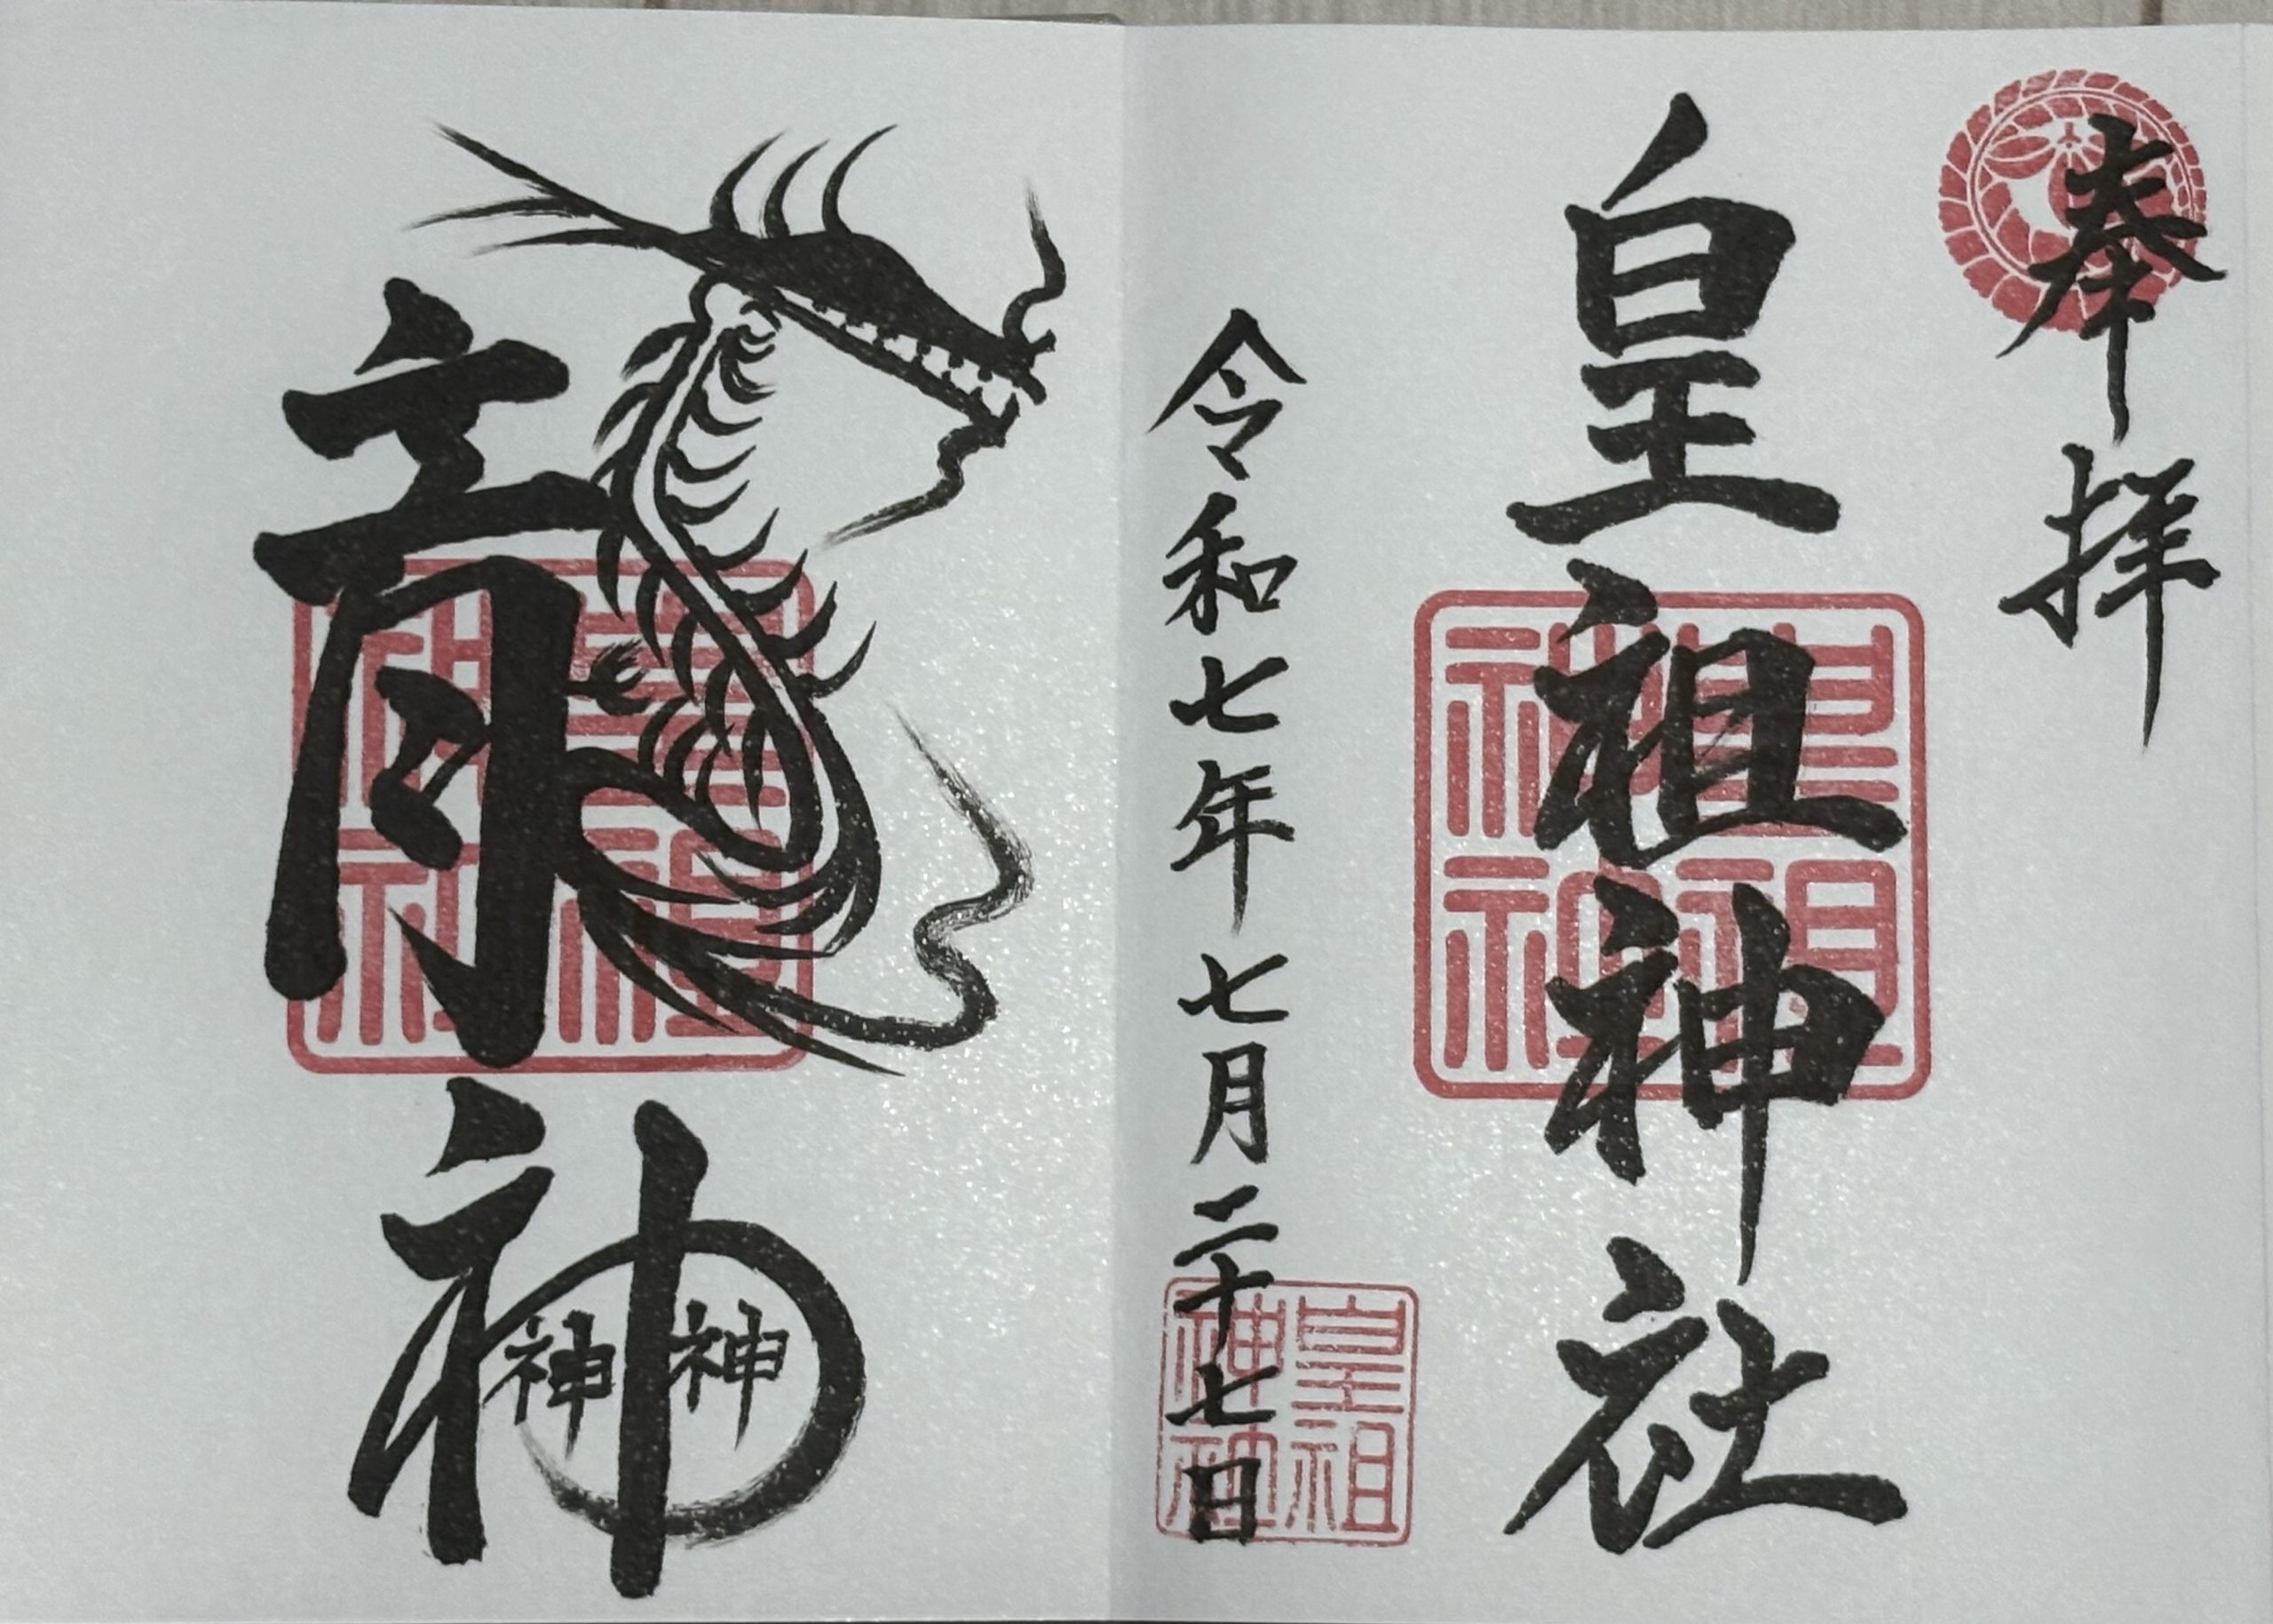 奉拝
皇祖神社
皇祖神社
令和七年七月二十七日
皇祖神社
龍神
神神
皇祖神社